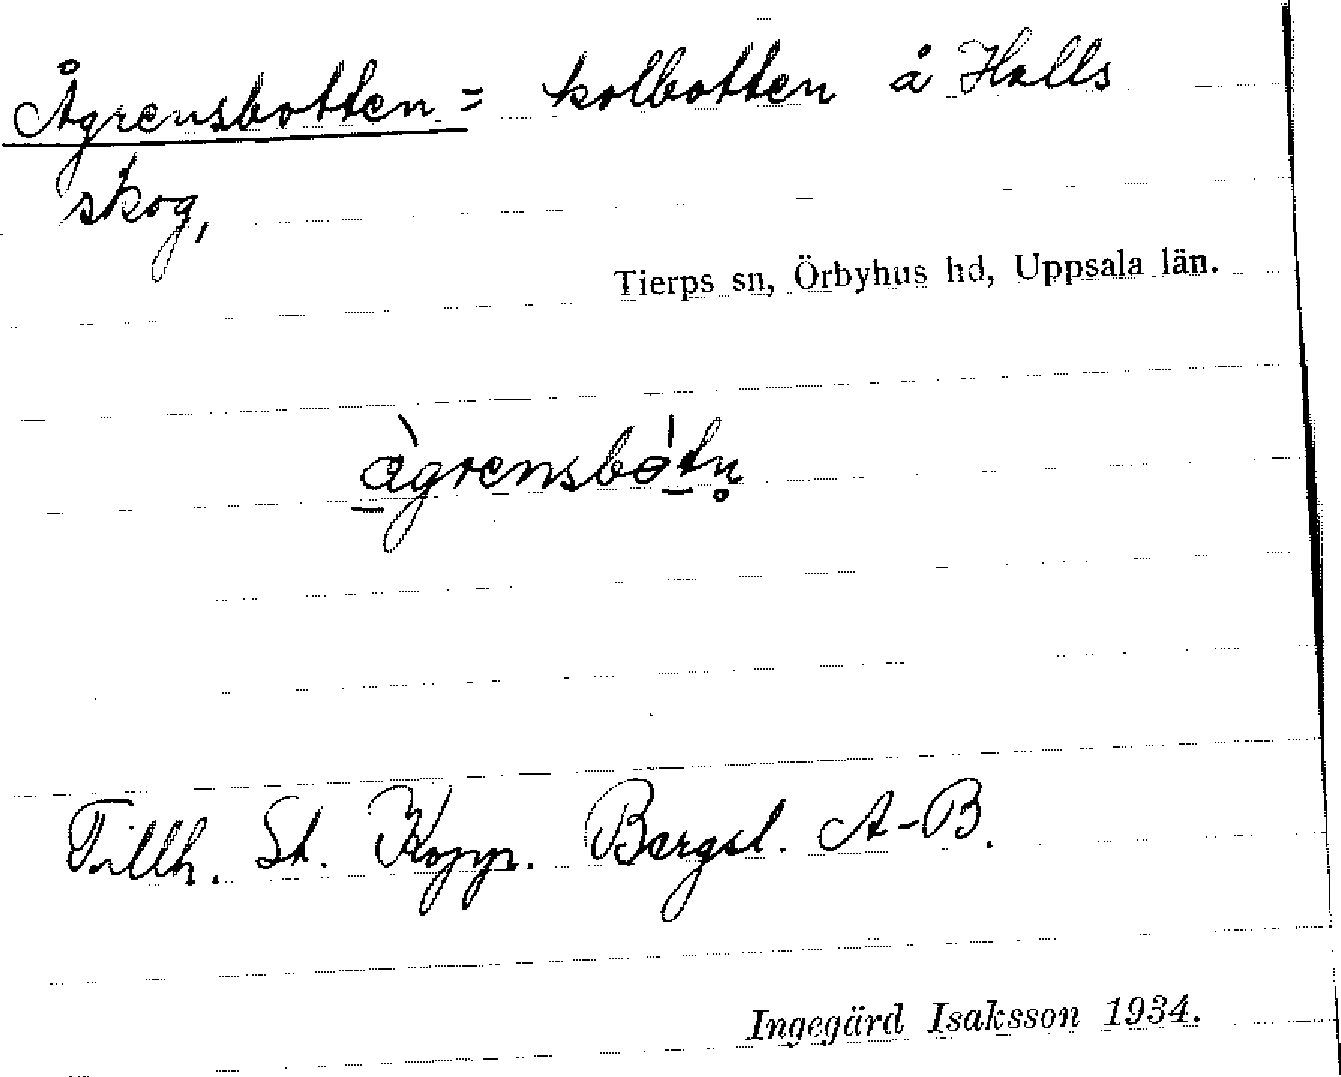 Ågrensbotten = kolbotten å Halls
skog,
Tierps sn, Örbyhus hd, Uppsala län.
àgrensbótn̥
Tillh. St. Kopp. Bergsl. A-B.
Ingegärd Isaksson 1934.